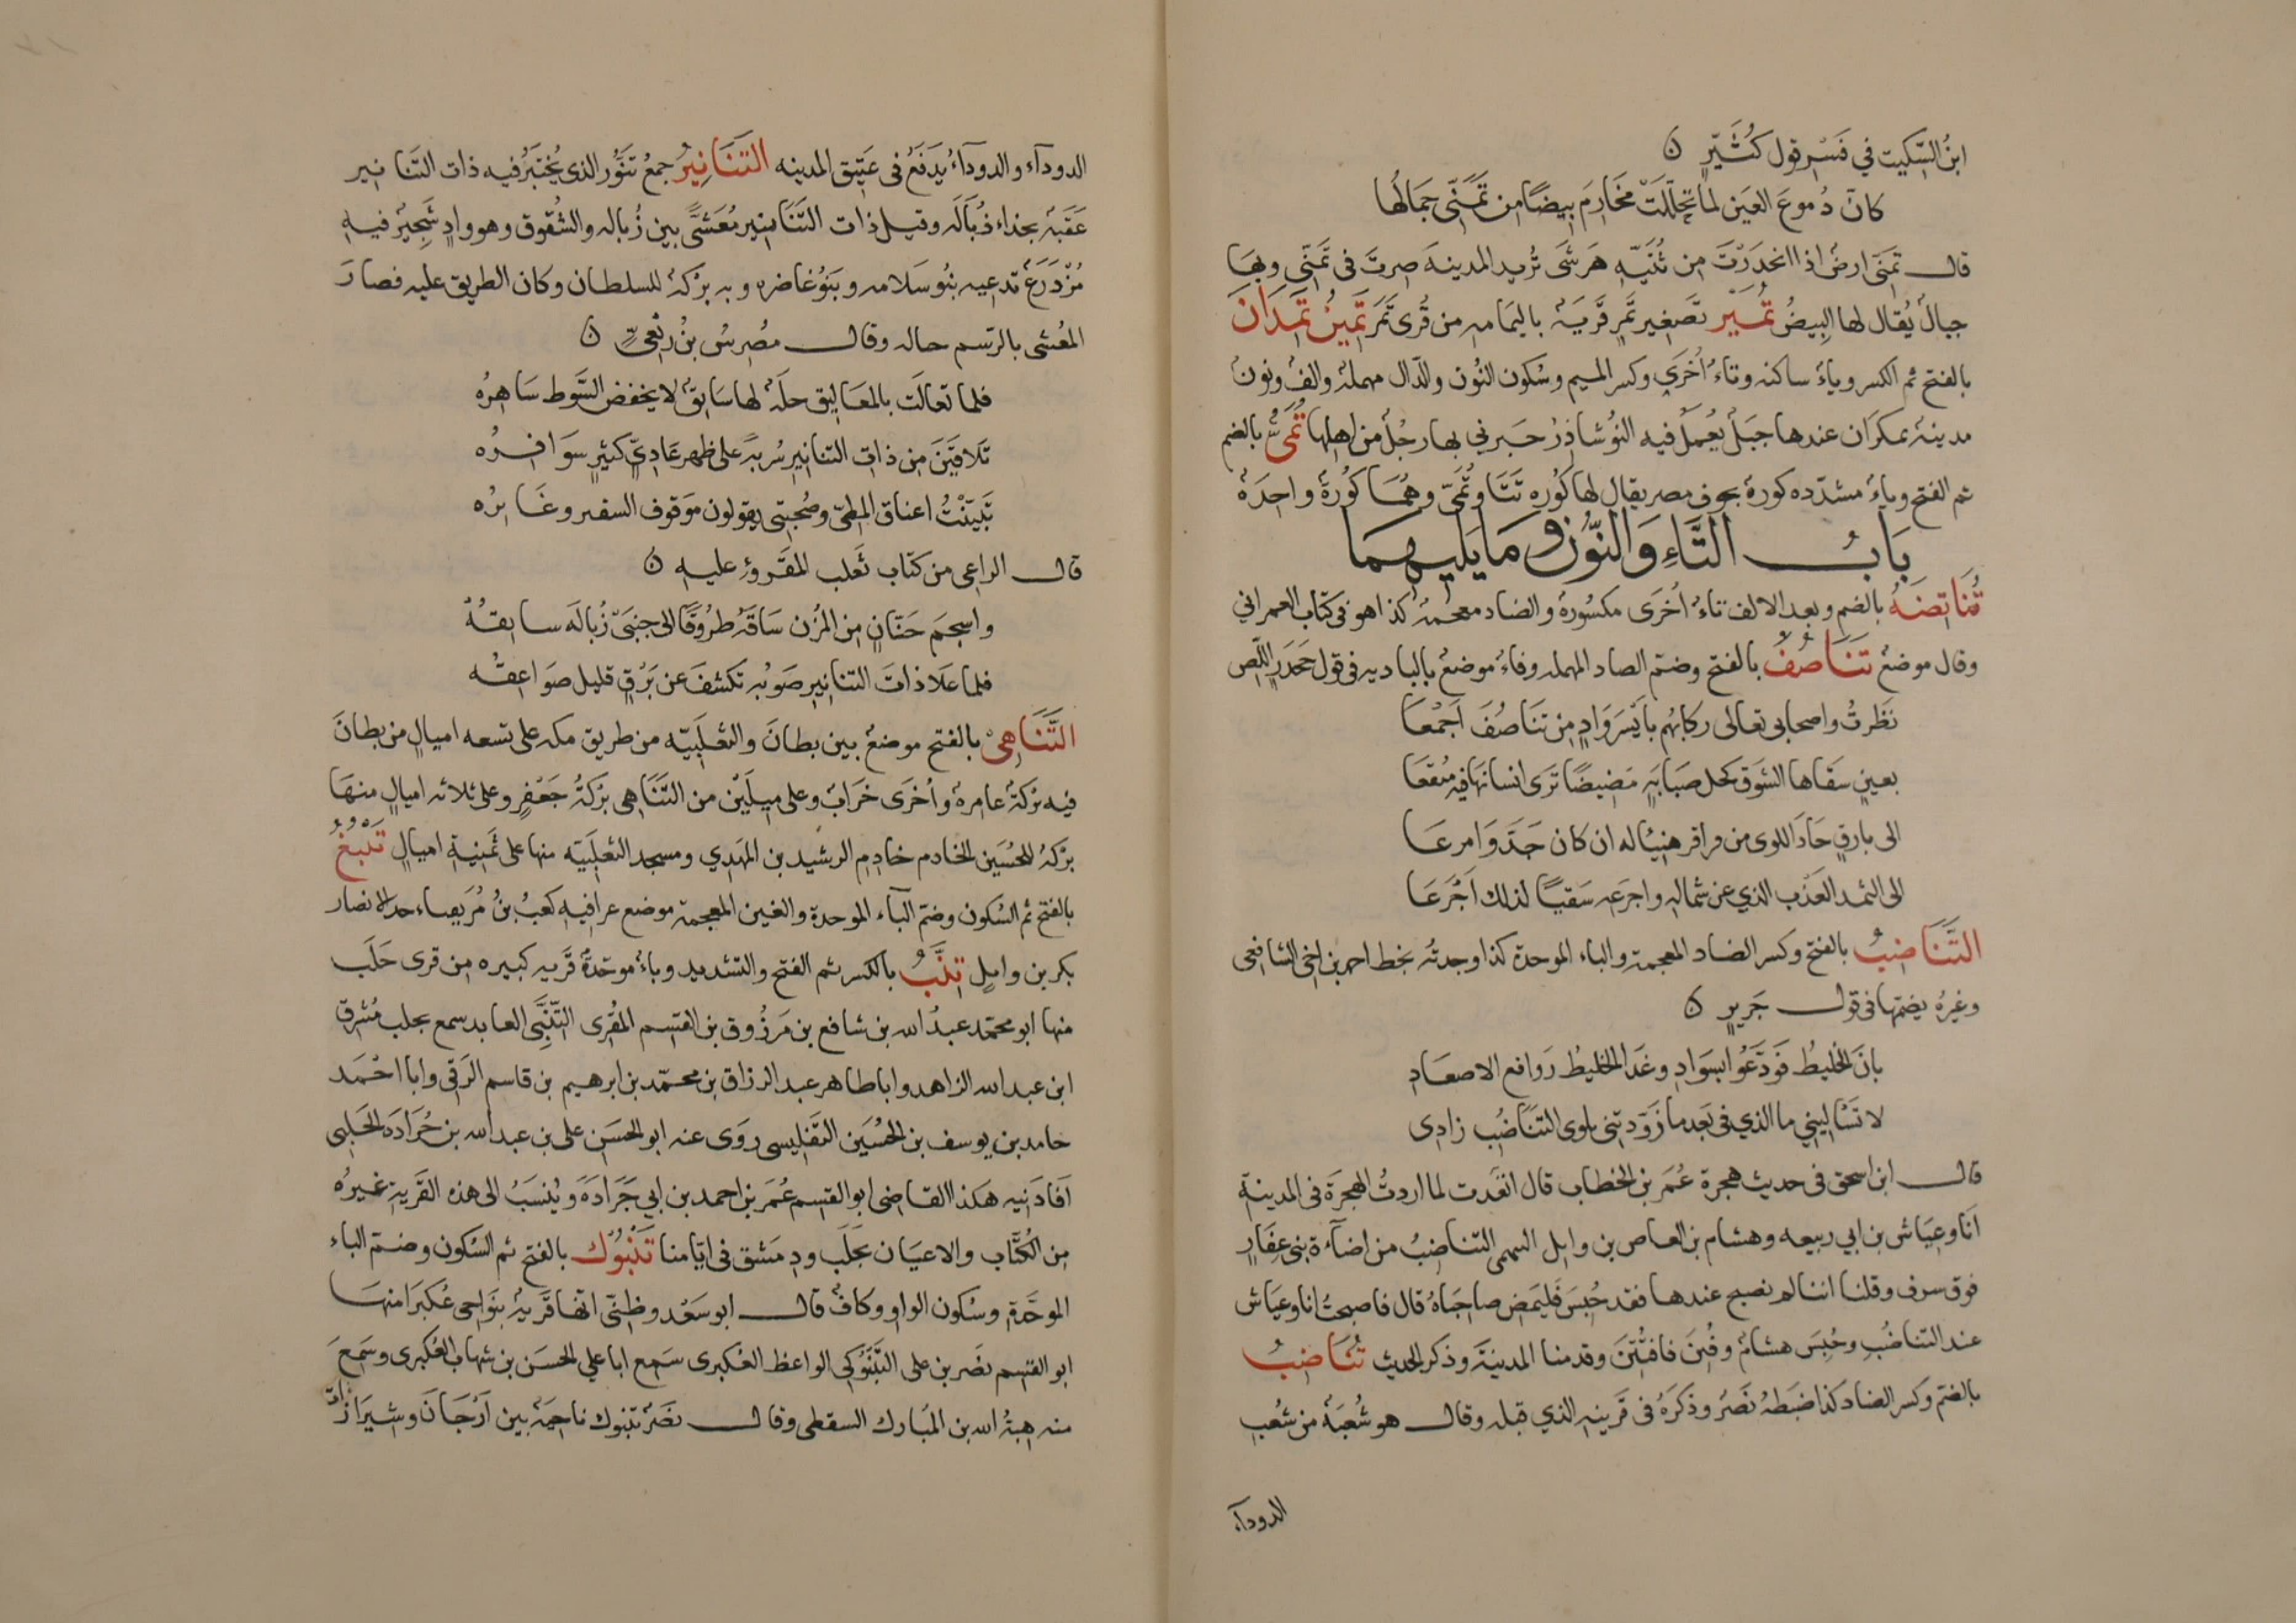 ابنُ السِّكيت في فَسْرِ قول كُثَيِّرٍ ن
كانّ دُموعَ العَين لما تحلّلَتْ مَخَارِمَ بِيضًا من تَمَنّى جَمَالُها
قال تمَنّى ارضٌ اذا انحدَرْتَ من ثَنيّه هَرشَى تُريد المدينهَ صرتَ فى تَمَنّى وبِهَا
جبالٌ يُقال لها البِيضُ تُمَيْر تَصغير تَمرٍ قَريَةٌ باليَمامه من قُرى تَمَرَ تَمِيْتَمِنْدَانَ
بالفتح ثم الكسر وياءٌ ساكنه وتاءٌ اُخرَى وكسر الميم وسُكون النُون والدّال مهملة والفٌ ونونٌ
مدينةٌ بمكرَان عندها جبَلٌ يُعمَلُ فيه النُوشاذِرُ خبرني بها رجُلٌ من اهلها تُمَىُّ بالضم
ثم الفتح وياءٌ مشدّده كورةٌ بحوف مصر يقال لها كُوره تَتَا وتُمَىّ وهُمَا كُورةٌ واحِدَةٌ
بَابُ التَّاءِ وَالنّوُن وَمَا يَليهِمَا
تُنَاتِضَهُ بالضم وبعد الالف تاءٌ اُخرَى مكسُورةٌ والضاد معجمةٌ كذا هو فى كتاب العمراني
وقال موضعٌ تَنَاصُفُ بالفتح وضمّ الصاد المهمله وفاءٌ موضعٌ بالباديه فى قول جَحدَرٍ اللّصِ
نَظَرتُ واصحابى تعالى ركابُهم بايْسَرِ وَادٍ من تنَاصُفَ اَجْمَعَا
بعينٍ سقاها الشوَق كحل صَبَابَةٍ مَضِيضًا تَرَى انسانَها فيه مُنقعَا
الى بارقٍ حَادَ اللوى من قراقر هنِيئا له ان كان جَدَّ وَامرعَا
الى الثمد العَذْب الذي عن شماله واجرَعِه سَقيًا لذلك اَجْرَعَا
التَّنَاضِبُ بالفتح وكسر الضاد المعجمة والباء الموحدة كذا وجدتُه بخط احمد بن اخى الشافعى
وغيرُه يضمّها فى قول جَريرٍ ن
بانَ الخليطُ فَوَدَّعُوا بسَوَادِ وغدَا الخليطُ رَوافع الاصعَادِ
لا تَسْاليني ما الذي فى بَعدما زَوّدتِنى بلوى التنَاضُبِ زادِى
قال ابن اسحق فى حديث هجرة عُمَر بن الخطاب قال اتعَدت لما اردتُ الهجرَة فى المدينة
اَنا وعياش بن ابي ربيعه وهشام بن العاص بن وابل السهمى التناضِبُ من اضآءة بنى غِفَارٍ
فوق سرف وقلنا اننا لم نصبح عندها فقد حُبِسَ فَليَمضِ صاحبَاهُ قال فاصبحتُ انا وعيَاش
عند التناضُبِ وحُبِسَ هشامٌ وفُتِنَ فافتُتِنَ وقدمنا المدينَة وذكر الحديث تُنَاضِبُ
بالضمّ وكسر الضاد كذا ضَبَطهُ نَصْر وذكرَهُ فى قرينهِ الذي قبله وقال هو شُعبَةٌ من شُعبِ
الدودآء
الدودآء والدودآءُ يَدفَعُ فى عَتيق المدينه التّنَانِيرُ جمعُ تنُّور الذى يُختَبَزُ فيه ذات التنانير
عَقَبةٌ بحذاء زُبَالَه وقيل ذات التنَانير مُعَشَّى بين زُباله والشُقوق وهو وادٍ شَجيرٌ فيهِ
مُزْدَرَعٌ تدعيه بنُو سَلامه وبَنُو غاضره وبه بركةٌ للسلطان وكان الطريق عليه فصارَ
المُعَشى بالرّسم حاله وقال مُضرسُ بنُ رِبْعيٍّ ن
فلما تعالَت بالمعَاليق حلةٌ لها سَابِقٌ لا يخفض السَّوط سَاهِرُه
تَلاقَيَنَ مِن ذات التنانيرِ سُربَةً على ظهرِ عَادِيّ كثيرٍ سوَافرُه
تَبيّنتُ اعناق المطىّ وصُحبتى يقولون مَوقوف السفير وعَابرُه
قال الراعى من كتاب ثَعلب المقرُوءِ عليهِ ن
واسجمَ حَنّانٍ مِن المُزن سَاقَه طُروقًا الى جنبَىْ زُبالَه سابقُهْ
فلما عَلا ذاتَ التنانِيرِ صَوبُه تكشفَ عن بَرْقٍ قليل صَوَاعِقُه
التَّنَاهِىْ بالفتح موضعٌ بين بطانَ والثعلبيّه من طريق مكه على تسعه اميالٍ من بطانَ
فيه بركَةٌ عامرةٌ واُخرَى خَرابٌ وعلى ميلَيْن من التنَاهى بركَةُ جَعْفرٍ وعلى ثلاثه اميالٍ منهَا
بركةٌ للحُسَين الخادم خادِم الرشيد بن المهَدي ومسجد الثعلبَيه منها على ثَمنِيةِ اميالٍ تَنْبُغُ
بالفتح ثم السُكون وضم البآء الموحدة والغين المعجمة موضع غزا فيه كعبُ بنُ مُزَيقياء جد الانصار
بكر بن وايلٍ تِنَّبُ بالكسر ثم الفتح والتشديد وباءٌ موَحّدةٌ قَريه كبيره من قرى حَلَب
منها ابو محمّد عبدُ الله بن شافع بن مَرزُوق بن القسم المقُرى التِّنَّبَّى العابد سمع بحلب مُشرق
ابن عبد الله الزاهد وابا طاهر عبد الرزاق بن محمّد بن ابرهيم بن قاسم الرَقى وابا احْمَد
حامد بن يوسف بن الحُسَين التَفْلِيسى روَى عنه ابو الحسَن على بن عبد الله بن جُرَادَه الحَلَبى
اَفادَنِيه هكذا القاضى ابو القسم عُمَر بن احمد بن ابي جَرَادَةَ ويُنسَبُ الى هذه القَريةِ غيرُه
من الكُتّاب والاعيَان بحَلَب ودِمَشق فى ايّامنا تَنْبُوْك بالفتح ثم السُكون وضمّ الباء
الموحّدة وسُكون الواو وكافٌ قال ابو سَعْد وظنّى انّها قَريةٌ بنَواحى عُكبَرَا منهَا
ابو القسم نَصر بن على التَّنْبُوكى الواعظ العُكبرى سَمع ابا علي الحسَن بن شهاب العُكبرى وسَمعَ
منه هبةُ الله بن المُبارك السقطى وقال نصَرٌ تنبوك ناحِيةٌ بين اَرّجَانَ وشيرَاز